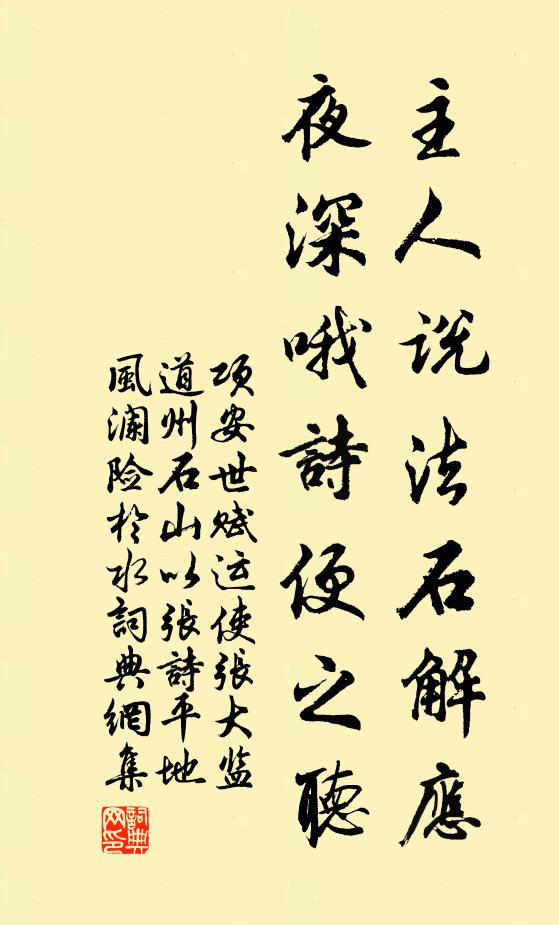 主人说法石解應
夜深哦詩便之聽
项安世赋运使張大监
道州石山以張詩平地
風澜险於水詞典網集
詞典網印